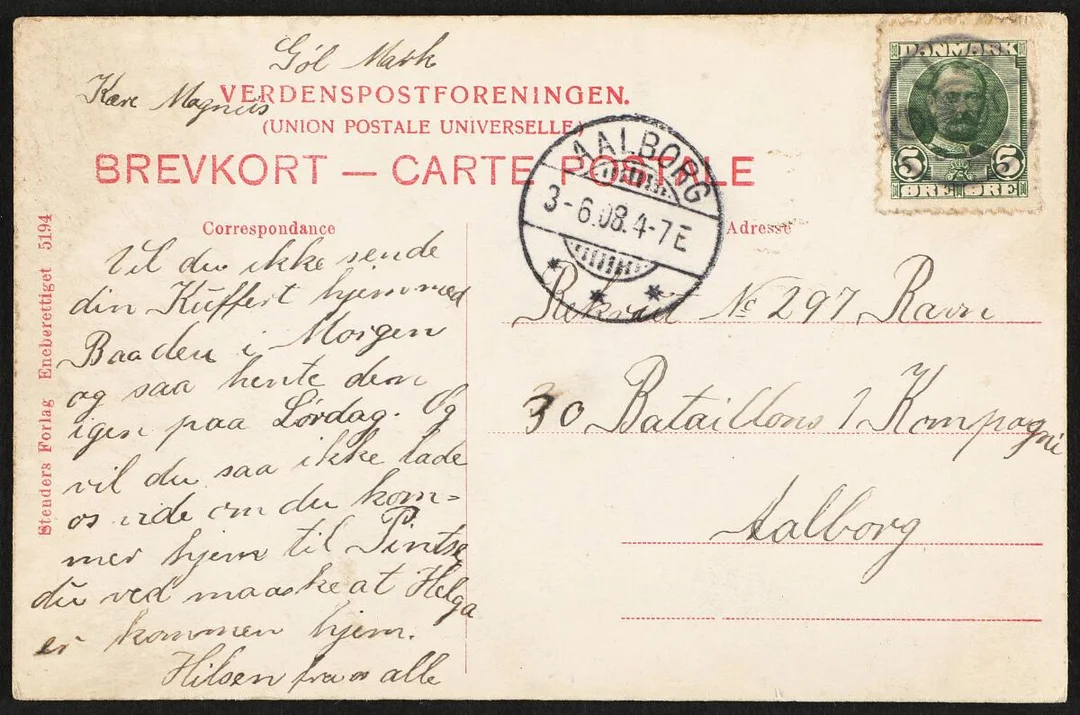 Göl Mark
Kære Magnus
VERDENSPOSTFORENINGEN.
(UNION POSTALE UNIVERSELLE)
BREVKORT — CARTE POSTALE
Correspondance
Adresse
Vil du ikke sende
din Kuffert hjem med
Baaden i Morgen
og saa hente dem
igen paa Lørdag. Og
vil du saa ikke lade
os vide om du kom=
mer hjem til Pintse
du ved maaske at Helga
er kommen hjem.
Hilsen fra os alle
Rekrut No 297 Ravn
30 Bataillons 1 Kompagni
Aalborg
Stenders Forlag Eneberettiget 5194
AALBORG
3-6.08.4-7E
DANMARK
5 5
ØRE ØRE